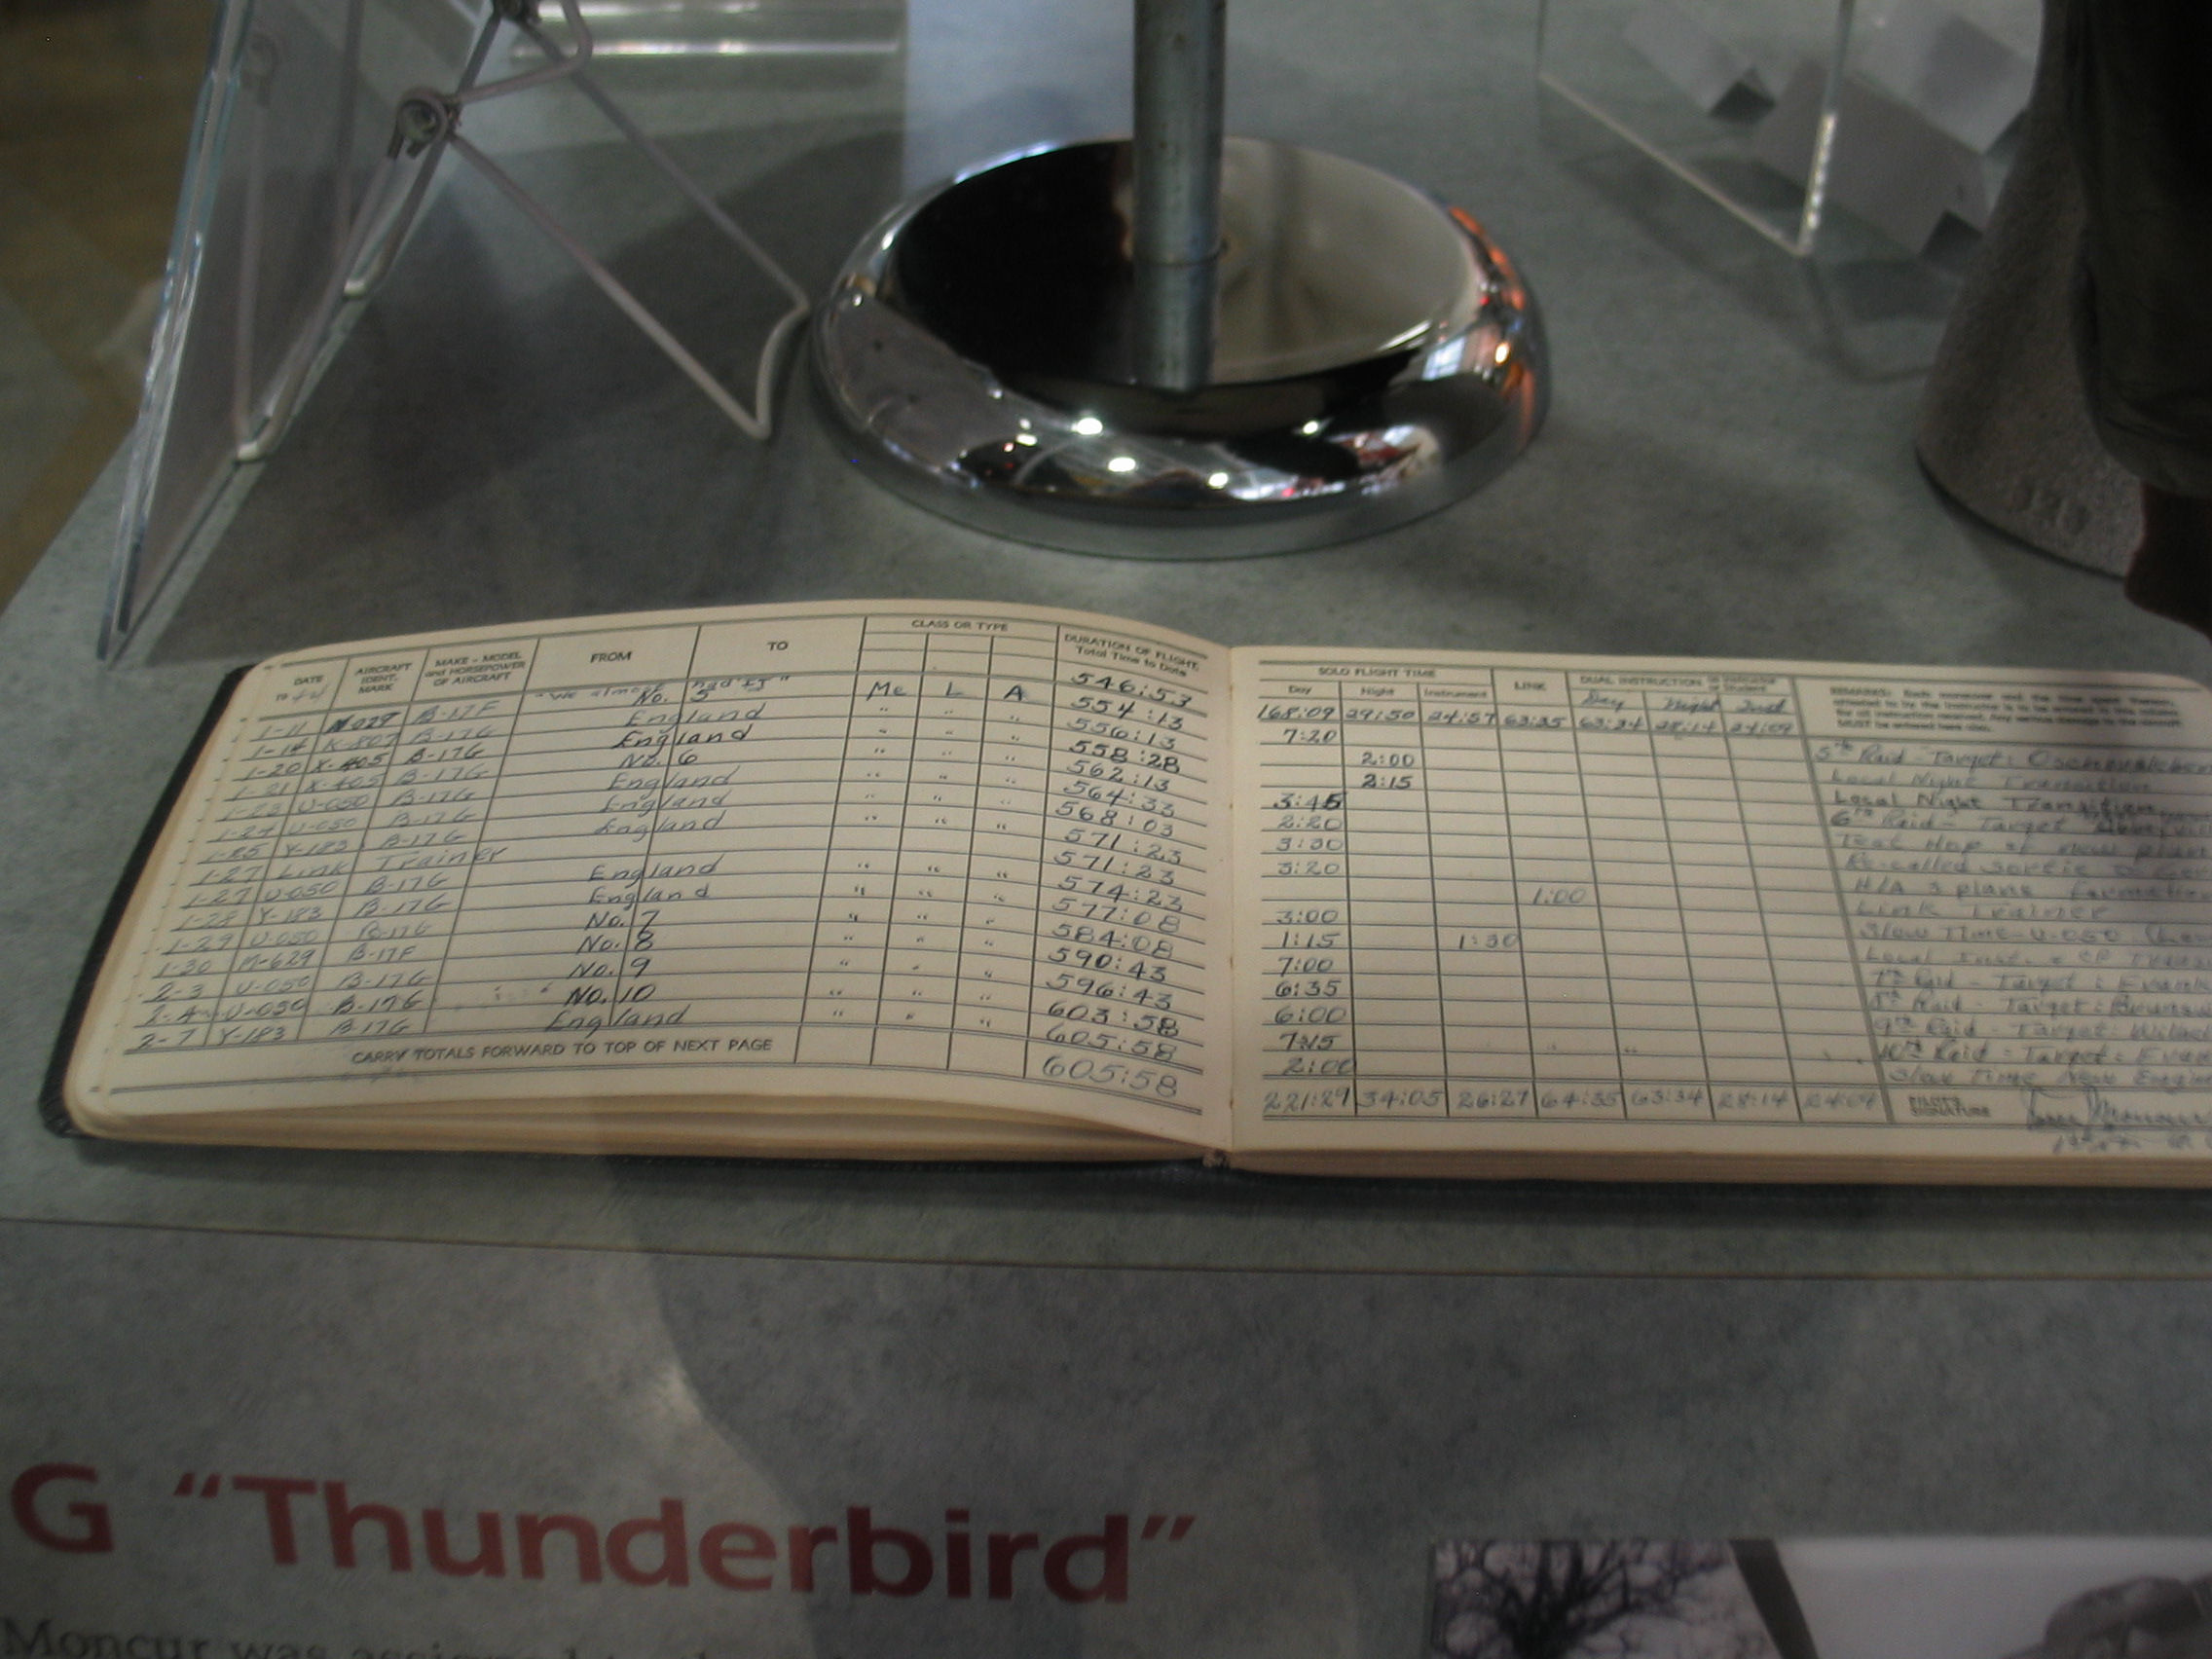 DATE 19 44 AIRCRAFT IDENT. MARK MAKE - MODEL and HORSEPOWER OF AIRCRAFT FROM TO CLASS OR TYPE DURATION OF FLIGHT Total Time to Date
"We almost had it" Me L A 546:53
1-11 N-029 B-17F No. 5 " " " 554:13
1-14 K-807 B-17G England " " " 556:13
1-20 X-405 B-17G England " " " 558:28
1-21 X-405 B-17G No. 6 " " " 562:13
1-23 U-050 B-17G England " " " 564:33
1-24 U-050 B-17G England " " " 568:03
1-25 Y-183 B-17G England " " " 571:23
1-27 Link Trainer 571:23
1-27 U-050 B-17G England " " " 574:23
1-28 Y-183 B-17G England " " " 577:08
1-29 U-050 B-17G No. 7 " " " 584:08
1-30 M-629 B-17F No. 8 " " " 590:43
2-3 U-050 B-17G No. 9 " " " 596:43
2-4 U-050 B-17G No. 10 " " " 603:58
2-7 Y-183 B-17G England " " " 605:58
CARRY TOTALS FORWARD TO TOP OF NEXT PAGE 605:58
SOLO FLIGHT TIME LINK DUAL INSTRUCTION as Instructor or Student
Day Night Instrument Day Night Inst
168:09 29:50 24:57 63:35 63:34 28:14 24:09
7:20 5th Raid - Target:
2:00 Local Night Transition
2:15 Local Night Transition
3:45 6th Raid - Target
2:20 Test Hop of new plane
3:30 Re-called sortie
3:20 H/A 3 plane formation
1:00 Link Trainer
3:00 Slow Time - U-050
1:15 1:30 Local Inst.
7:00 7th Raid - Target:
6:35 8th Raid - Target:
6:00 9th Raid - Target:
7:15 10th Raid - Target:
2:00 Slow Time New
221:29 34:05 26:27 64:35 63:34 28:14 24:09 PILOT'S SIGNATURE
G "Thunderbird"
Moncur was assigned to